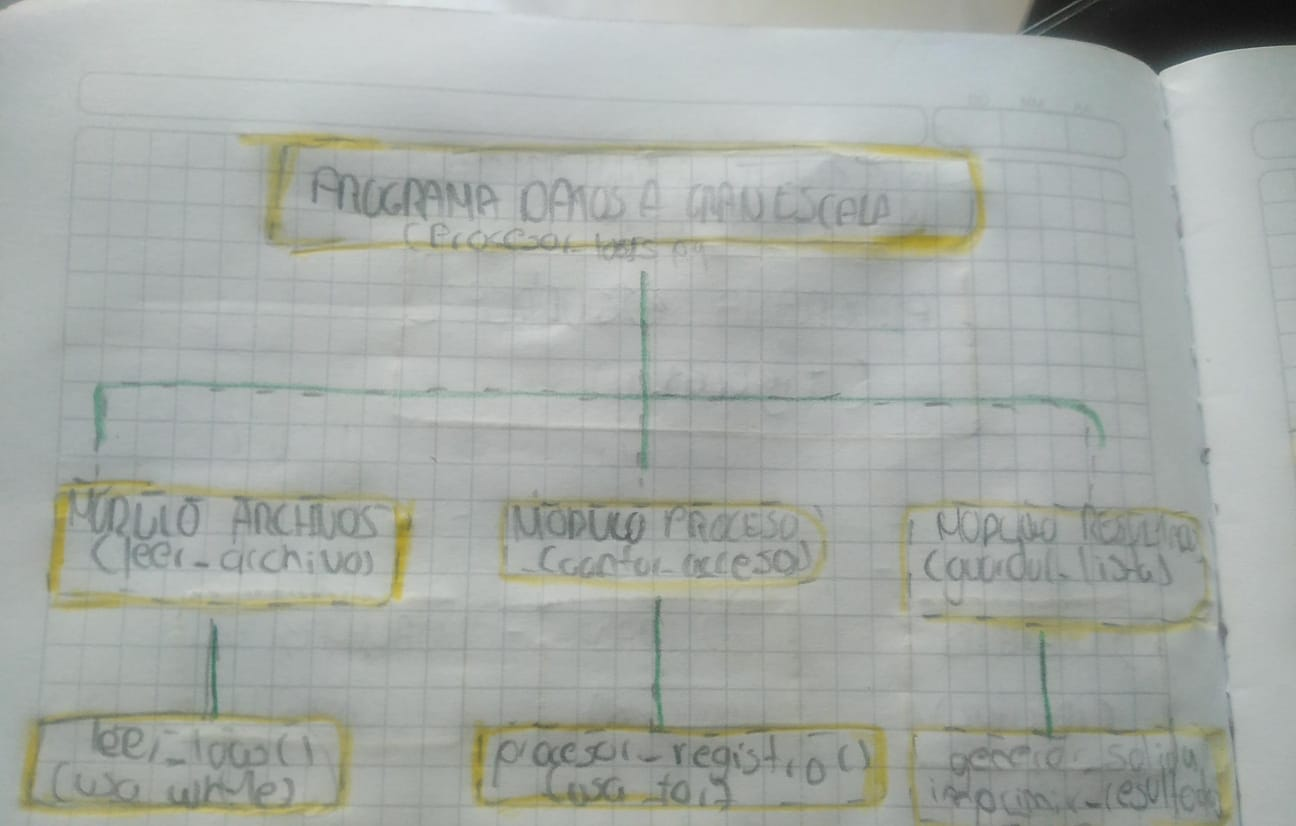 PROGRAMA DATOS A GRAN ESCALA
(Procesar_logs
MÓDULO ARCHIVOS
(leer_archivo)
MÓDULO PROCESO
(contar_acceso)
MODULO RESULTADO
(guardar_lista)
leer_logs()
(usa while)
procesar_registro()
(usa for)
generar_salida
imprimir_resultado